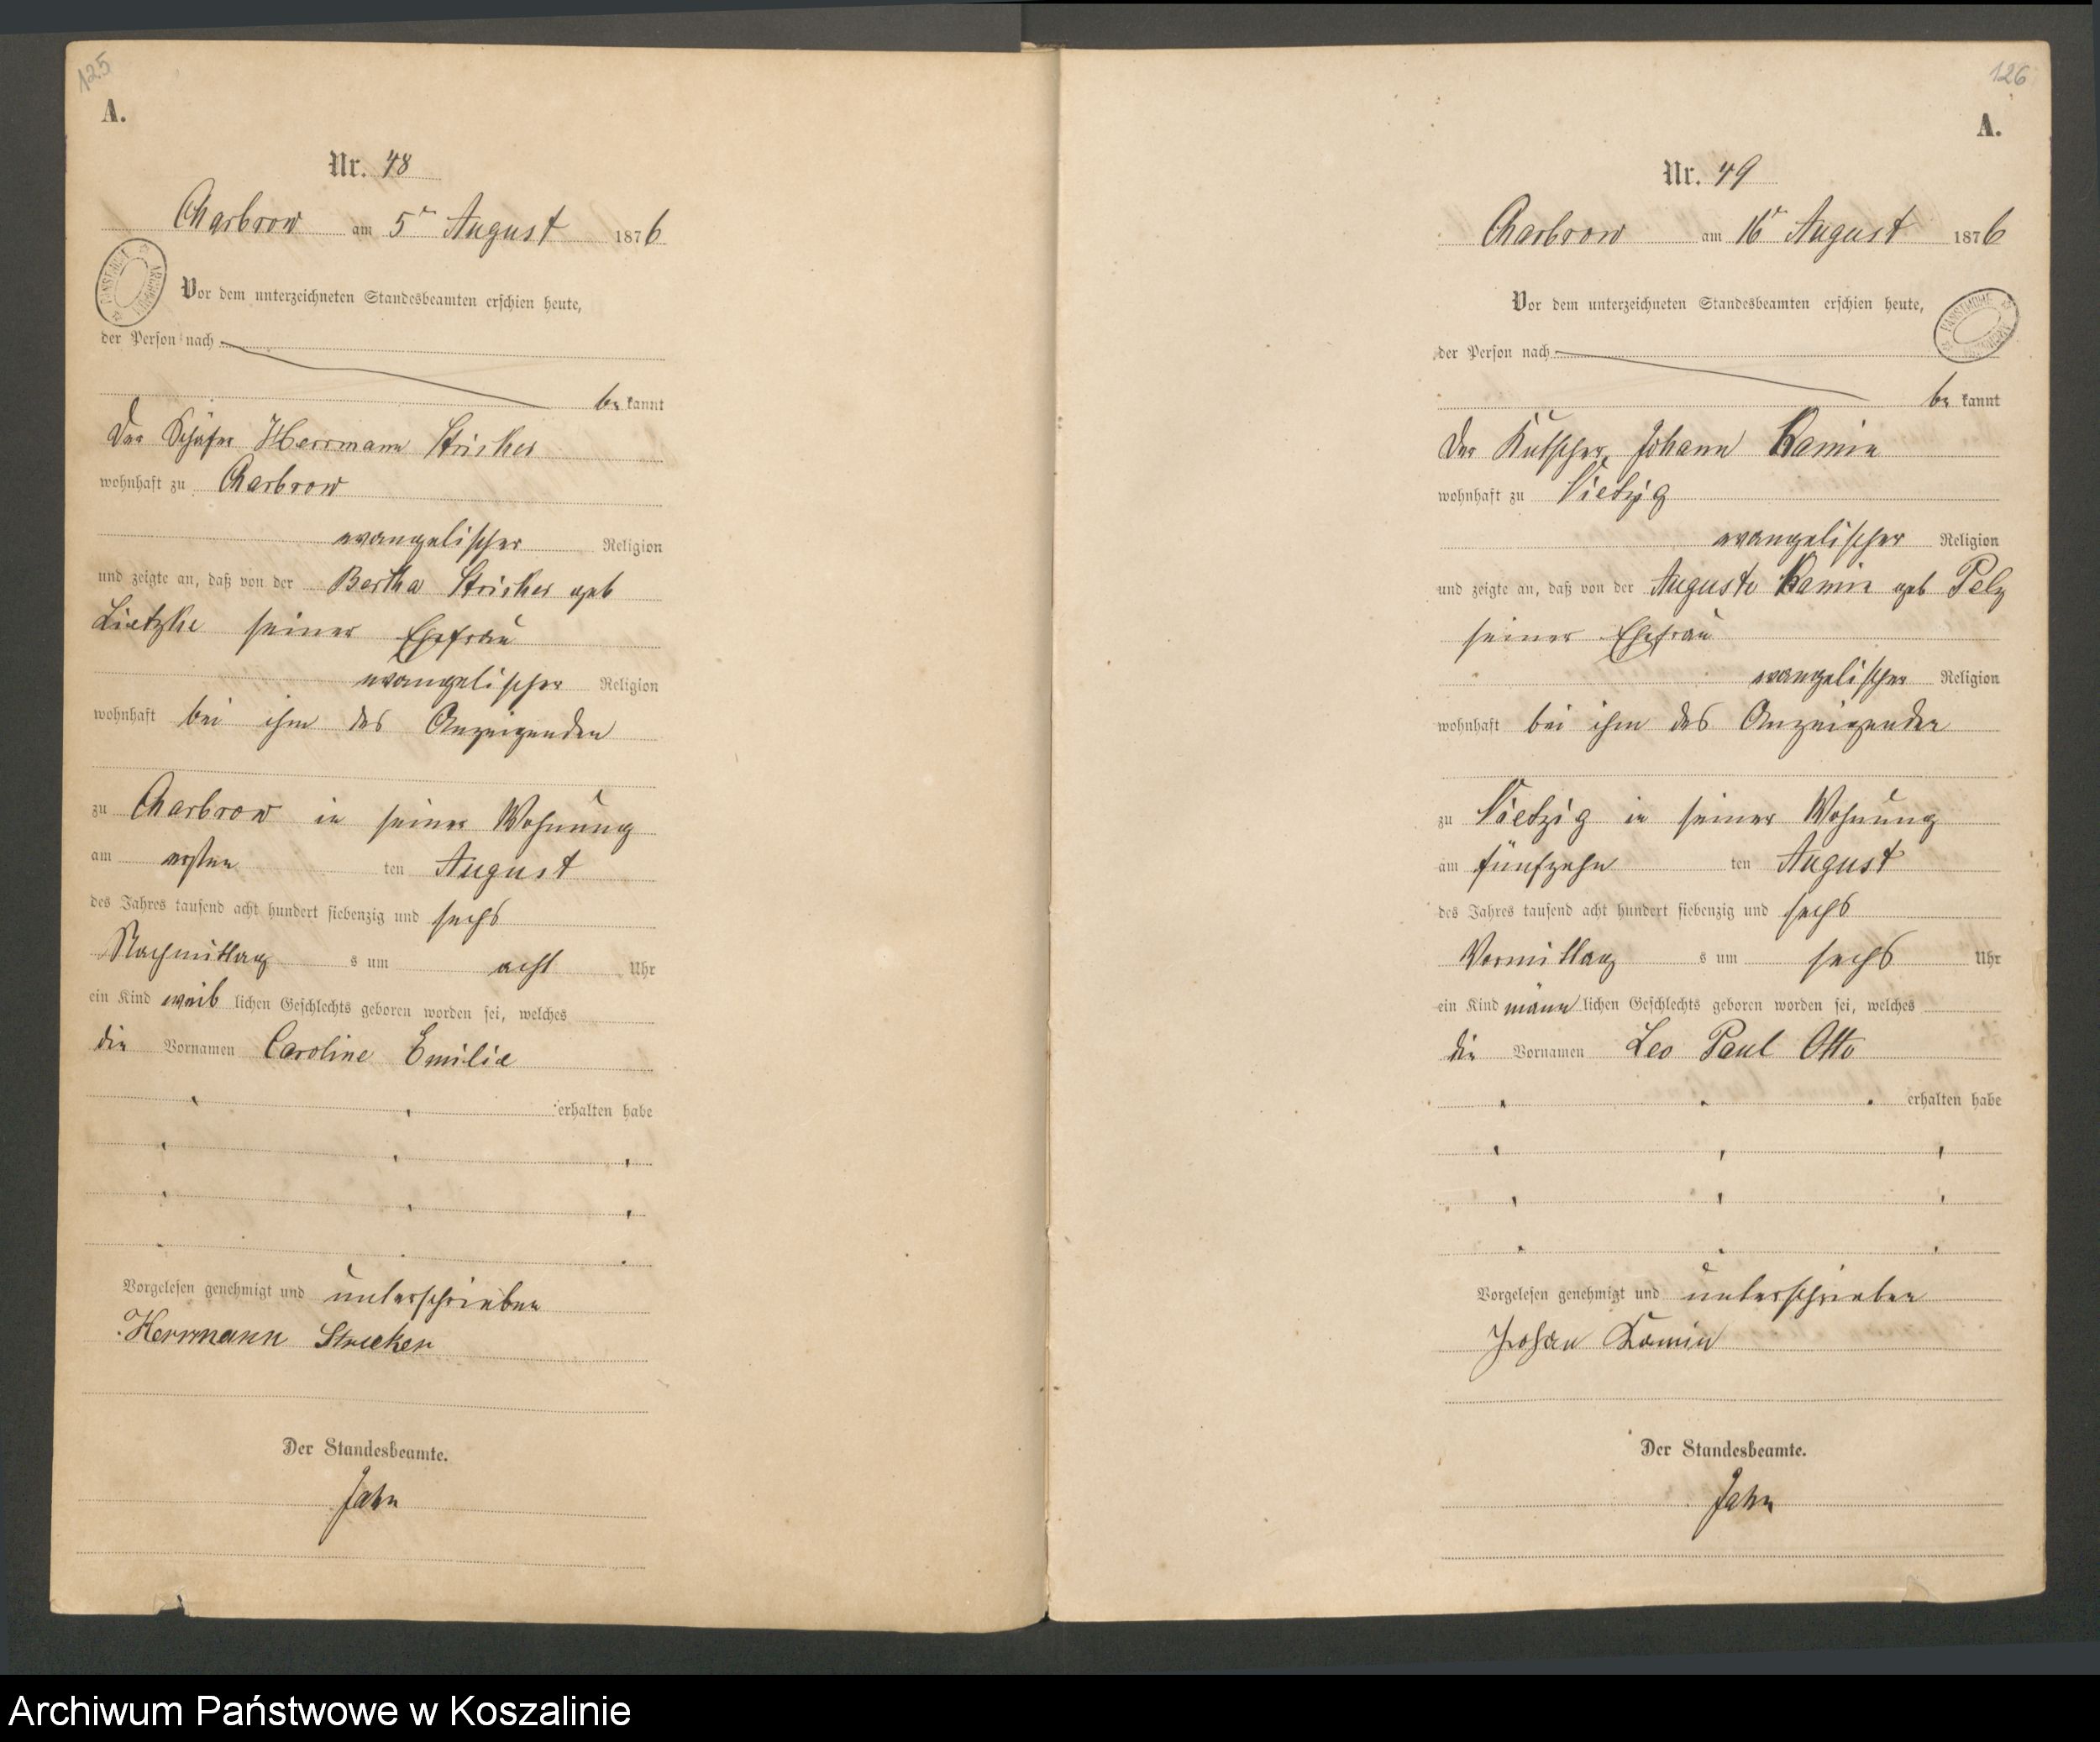 125
A.
Nr. 48
Charbrow am 5ten August 1876
Vor dem unterzeichneten Standesbeamten erschien heute,
der Person nach
be kannt
Der Schäfer Herrmann Stricker
wohnhaft zu Charbrow
evangelischer Religion
und zeigte an, daß von der Bertha Stricker geb
Lietzke seiner Ehefrau
evangelischer Religion
wohnhaft bei ihm des Anzeigenden
zu Charbrow in seiner Wohnung
am ersten ten August
des Jahres tausend acht hundert siebenzig und sechs
Nachmittag s um acht Uhr
ein Kind weib lichen Geschlechts geboren worden sei, welches
die Vornamen Caroline Emilie
erhalten habe
Vorgelesen genehmigt und unterschrieben
Herrmann
Der Standesbeamte.
Jahn
126
A.
Nr. 49
Charbrow am 16ten August 1876
Vor dem unterzeichneten Standesbeamten erschien heute,
der Person nach
be kannt
Der Kutscher Johann Kamin
wohnhaft zu Vietzig
evangelischer Religion
und zeigte an, daß von der Auguste Kamin geb Pelz
seiner Ehefrau
evangelischer Religion
wohnhaft bei ihm des Anzeigenden
zu Vietzig in seiner Wohnung
am fünfzehn ten August
des Jahres tausend acht hundert siebenzig und sechs
Vormittag s um sechs Uhr
ein Kind männ lichen Geschlechts geboren worden sei, welches
die Vornamen Leo Paul Otto
erhalten habe
Vorgelesen genehmigt und unterschrieben
Johan Kamin
Der Standesbeamte.
Jahn
Archiwum Państwowe w Koszalinie